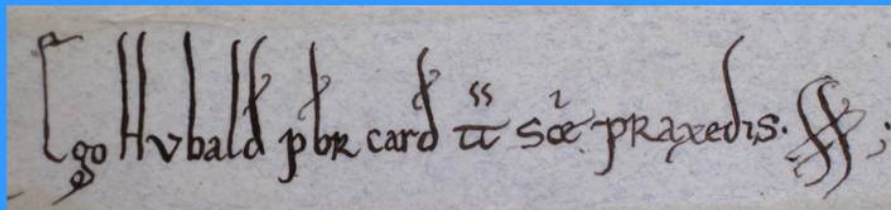 Ego Hubald pbr card tt scę praxedis. ss ;